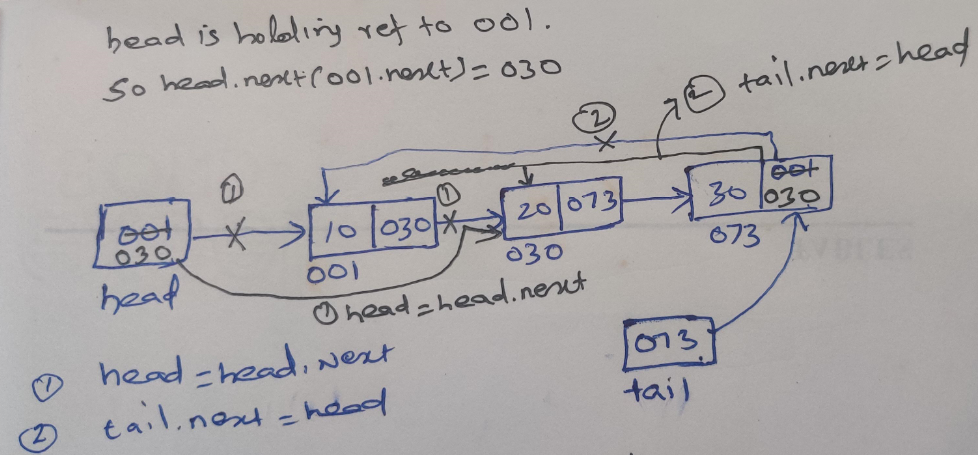 head is holding ref to 001.
So head.next(001.next) = 030
② tail.next = head
②
①
①
001
030
head
10 030
001
20 073
030
30 001
030
073
① head = head.next
073
tail
① head = head.Next
② tail.next = head